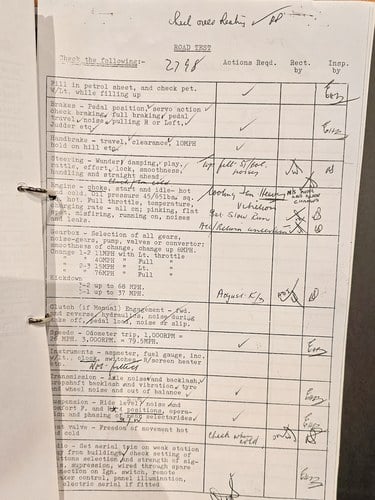 Fuel over Heating
ROAD TEST
Check the following:-
2798
Actions Reqd.
Rect. by
Insp. by
Fill in petrol sheet, and check pet.
W/Lt. while filling up
Brakes - Pedal position, servo action
check braking, full braking, pedal
travel, noise, pulling R or Left.
Judder etc.
Handbrake - travel, clearance, 10MPH
hold on hill etc.
Steering - Wander, damping, play,
rattle, effort, lock, smoothness,
handling and straight ahead.
Engine - choke, start and idle- hot
cold. Oil pressure 45/65lba. sq.
hot. Full throttle, temperature,
charging rate - all on; pinking, flat
spot, misfiring, running on, noises
and leaks.
Cooling Fan Heavy
Vibration
Set Slow Run
Gearbox - Selection of all gears,
noise-gears, pump, valves or convertor:
smoothness of change, change up 6MPH.
Change 1-2 11MPH with Lt. throttle
" " 40MPH " Full "
" 2-3 15MPH " Lt. "
" " 76MPH " Full "
Kickdown
3-2 up to 68 MPH.
2-1 up to 37 MPH.
Adjust K/D
Clutch (if Manual) Engagement - fwd.
and reverse, hydraulics, noise during
take off, pedal load, noise or slip.
Speedo - Odometer trip, 1,000RPM =
26 MPH. 3,000RPM. = 79.5MPH.
Instruments - ammeter, fuel gauge, inc.
W/Lt. clock, switches, R/screen heater
etc.
Not fitted
Transmission - Axle noise and backlash,
propshaft backlash and vibration, tyre
and wheel noise and out of balance
Suspension - Ride level, noise and
comfort F. and R. positions, opera-
tion and phasing of
Heat valve - Freedom of movement hot
and cold
Check when cold
Radio - Set aerial trim on weak station
away from buildings, check setting of
buttons selection, and strength of sig-
nals, supression, wired through spare
connection on Ign. switch, remote
speaker control, panel illumination,
electric aerial if fitted